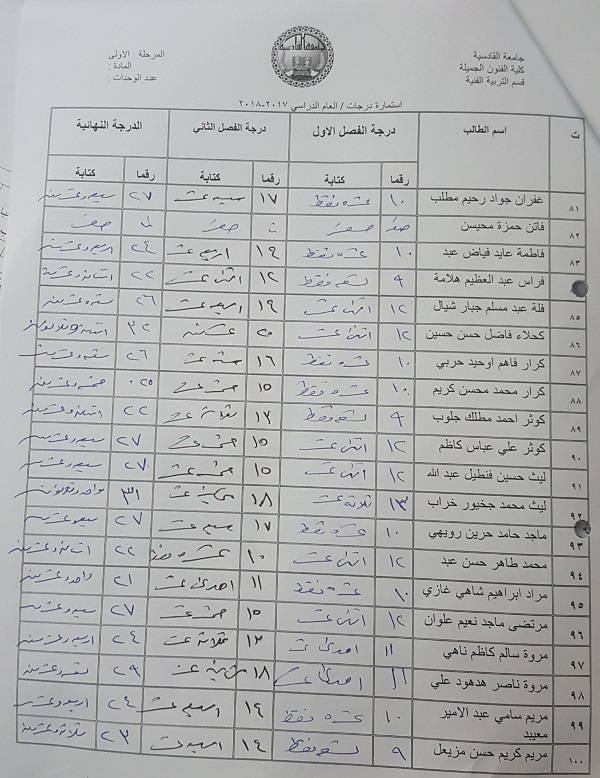 جامعة القادسية
كلية الفنون الجميلة
قسم التربية الفنية
المرحلة : الاولى
المادة :
عدد الوحدات :
استمارة درجات / العام الدراسي ٢٠١٧-٢٠١٨
ت اسم الطالب درجة الفصل الاول درجة الفصل الثاني الدرجة النهائية
رقما كتابة رقما كتابة رقما كتابة
٨١ غفران جواد رحيم مطلب ١٠ عشرة فقط ١٧ سبعة عشر ٢٧ سبعة وعشرين
٨٢ فاتن حمزة محيسن صفر صفر صفر
٨٣ فاطمة عايد فياض عبد ١٠ عشرة فقط ١٤ اربع عشر ٢٤ اربع وعشرين
فراس عبد العظيم هلامة ٩ تسعة فقط ١٢ اثنى عشر ٢٢ وعشرين
٨٥ فلة عبد مسلم جبار شيال ١٢ اثنى عشر ١٤ اربع عشر ٢٦ ستة وعشرين
٨٦ كحلاء فاضل حسن حسين ١٢ اثنى عشر ٢٠ عشرين ٣٢
٨٧ كرار فاهم اوحيد حربي ١٠ عشرة فقط ١٦ ستة عشر ٢٦ ستة وعشرين
٨٨ كرار محمد محسن كريم ١٠ عشرة فقط ١٥ خمس عشر ٢٥ خمسة وعشرين
٨٩ كوثر احمد مطلك جلوب ٩ تسعة فقط ١٣ ثلاثة عشر ٢٢ وعشرين
٩٠ كوثر علي عباس كاظم ١٢ اثنى عشر ١٥ خمس عشر ٢٧ سبعة وعشرين
٩١ ليث حسين فنطيل عبد الله ١٢ اثنى عشر ١٥ خمس عشر ٢٧ سبعة وعشرين
٩٢ ليث محمد جخيور خراب ١٣ ثلاثة عشر ١٨ عشر ٣١ واحد وثلاثون
٩٣ ماجد حامد حرين رويهي ١٠ عشرة فقط ١٧ سبعة عشر ٢٧ سبعة وعشرين
٩٤ محمد طاهر حسن عبد ١٢ اثنى عشر ١٠ عشرة فقط ٢٢ وعشرين
٩٥ مراد ابراهيم شاهي غازي ١٠ عشرة فقط ١١ احدى عشر ٢١ واحد وعشرين
٩٦ مرتضى ماجد نعيم علوان ١٢ اثنى عشر ١٥ خمس عشر ٢٧ سبعة وعشرين
٩٧ مروة سالم كاظم ناهي ١١ احدى عشر ١٣ ثلاثة عشر ٢٤ اربعة وعشرين
٩٨ مروة ناصر هدهود علي ١١ احدى عشر ١٨ ثمانية عشر ٢٩ تسعة وعشرين
٩٩ مريم سامي عبد الامير معيبد ١٠ عشرة فقط ١٤ اربع عشر ٢٤ اربع وعشرين
١٠٠ مريم كريم حسن مزيعل ٩ تسعة فقط ١٤ اربع عشر ٢٣ ثلاثة وعشرين